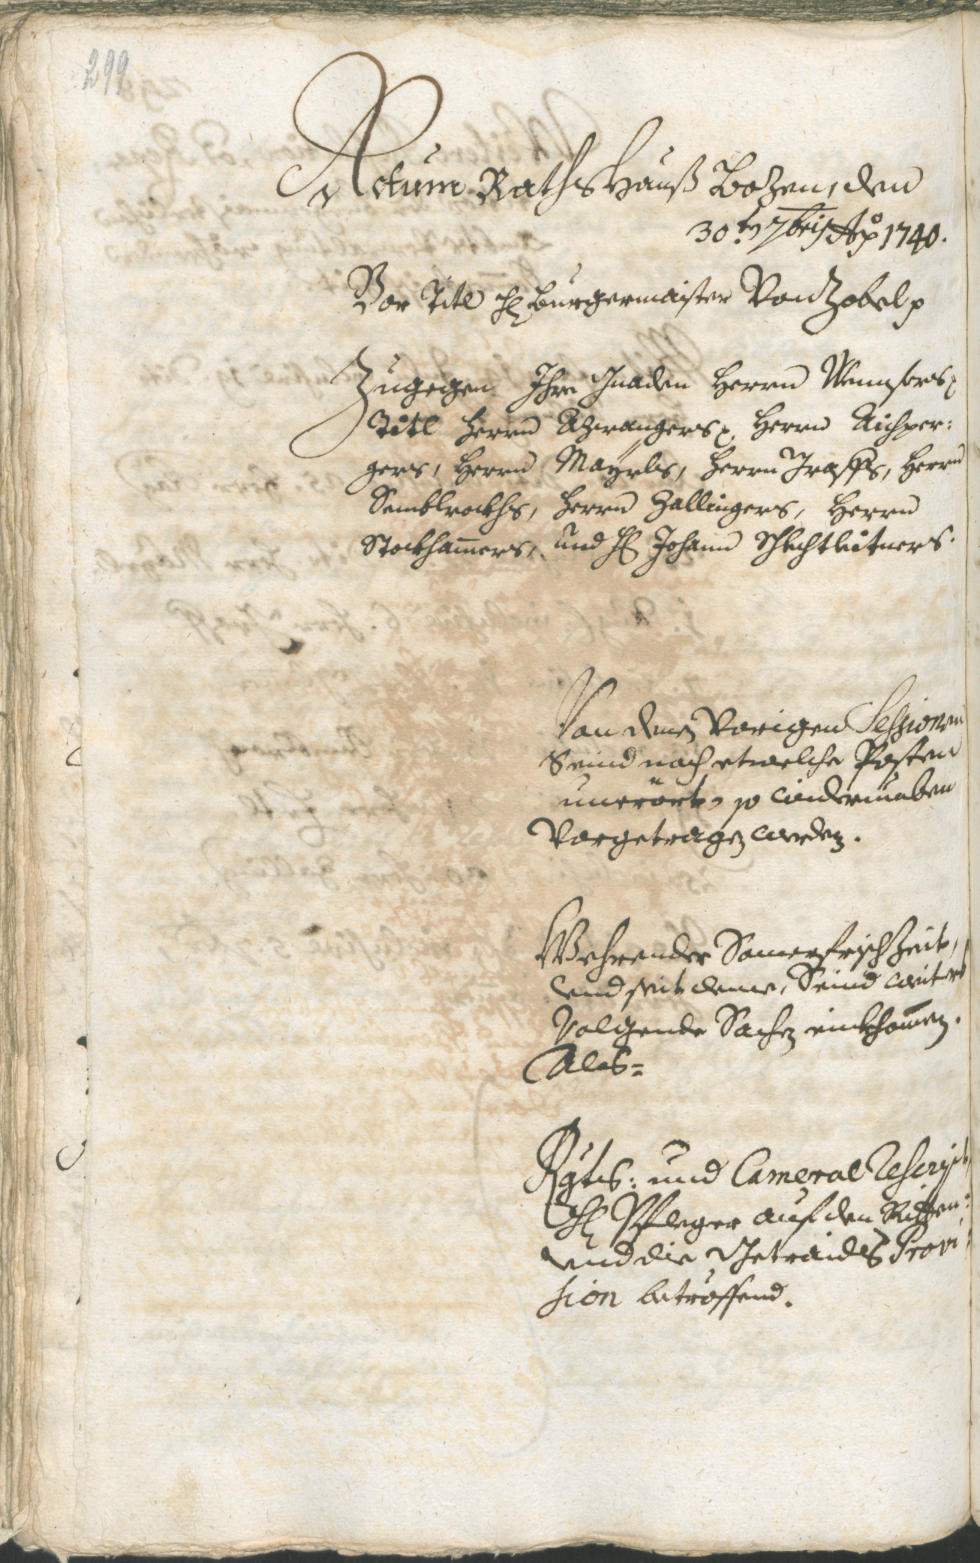 299
Actum Rathshauß Bozen, den
30.ten 7bris Aõ 1740.
Vor Titl H: Burgermaister Von Zobel p
Zugegen Ihro Gnaden Herrn
Titl Herrn Azwangers p, Herrn Aichper:
gers, Herrn Mayrls, Herrn Graffs, Herrn
Semblrockhs, Herrn Zallingers, Herrn
Stockhamers, und H: Johann Schlechtleitners.
Von denen Vorigen Sessionen
Seind noch etwelche Posten
unerört, so widerumben
Vorgetragen worden.
Wehrender Somerfrisch Zeit,
und seit deme, Seind weiters
Volgende Sachen einkhomen.
Als=
und Cameral Rescript
H: Pfleger auf den Ritten:
und die Getraidts Provi:
sion betröffend.